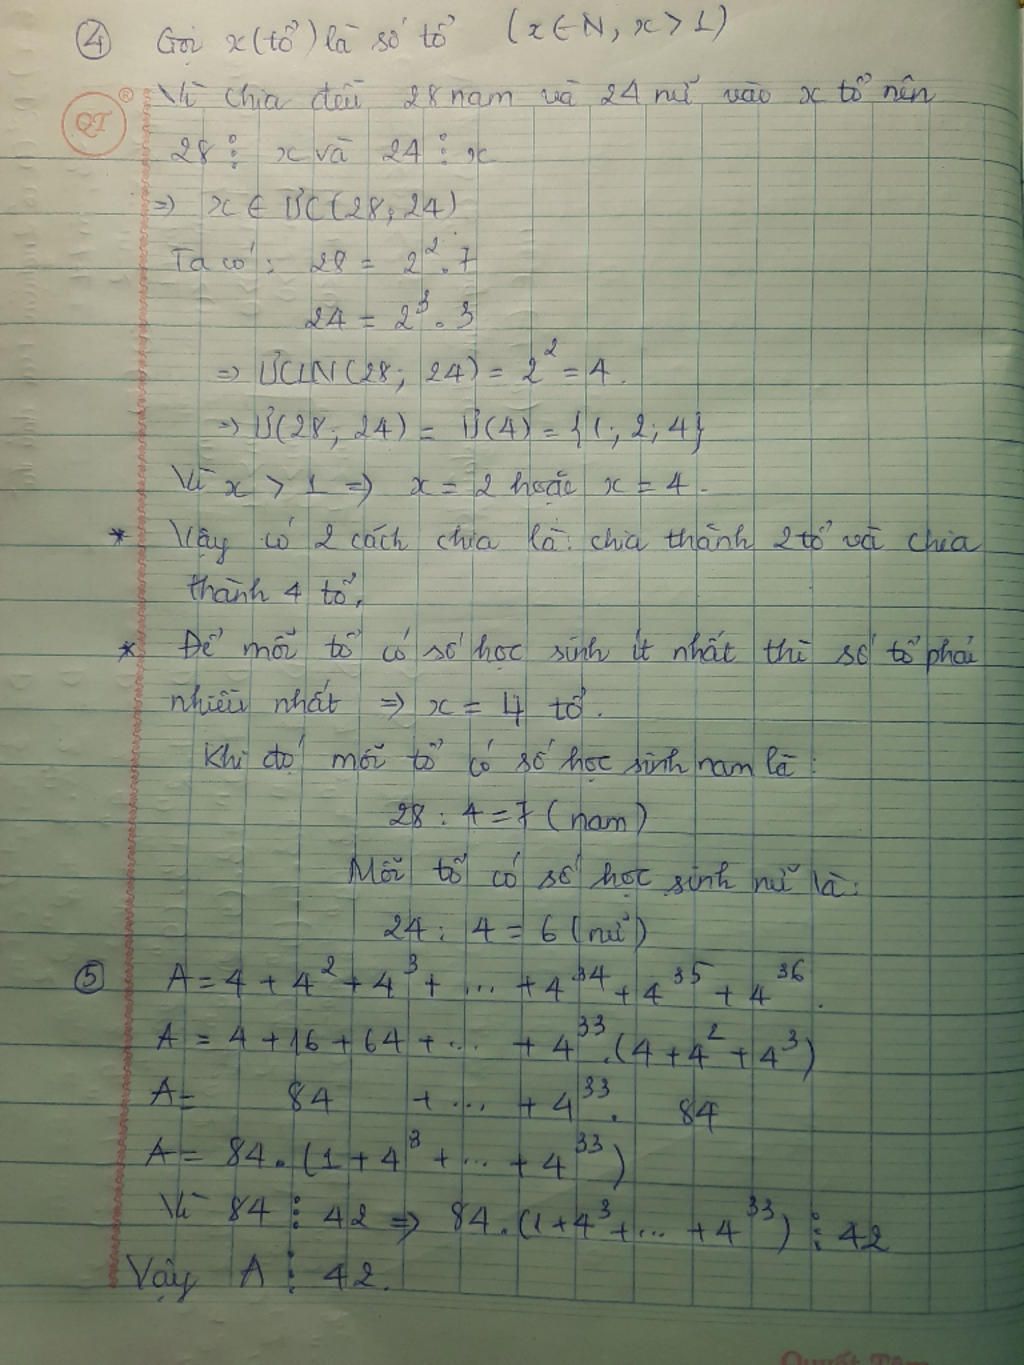 ④ Gọi x (tổ) là số tổ (x ∈ N, x > 1)
QT ®
Vì chia đều 28 nam và 24 nữ vào x tổ nên
28 ⋮ x và 24 ⋮ x
=> x ∈ ƯC(28; 24)
Ta có: 28 = 2² . 7
24 = 2³ . 3
=> ƯCLN(28; 24) = 2² = 4.
=> Ư(28; 24) = Ư(4) = {1; 2; 4}
Vì x > 1 => x = 2 hoặc x = 4.
* Vậy có 2 cách chia là: chia thành 2 tổ và chia
thành 4 tổ.
* Để mỗi tổ có số học sinh ít nhất thì số tổ phải
nhiều nhất => x = 4 tổ.
Khi đó mỗi tổ có số học sinh nam là:
28 : 4 = 7 (nam)
Mỗi tổ có số học sinh nữ là:
24 : 4 = 6 (nữ)
⑤ A = 4 + 4² + 4³ + ... + 4³⁴ + 4³⁵ + 4³⁶.
A = 4 + 16 + 64 + ... + 4³³.(4 + 4² + 4³)
A = 84 + ... + 4³³. 84
A = 84.(1 + 4³ + ... + 4³³)
Vì 84 ⋮ 42 => 84.(1 + 4³ + ... + 4³³) ⋮ 42
Vậy A ⋮ 42.